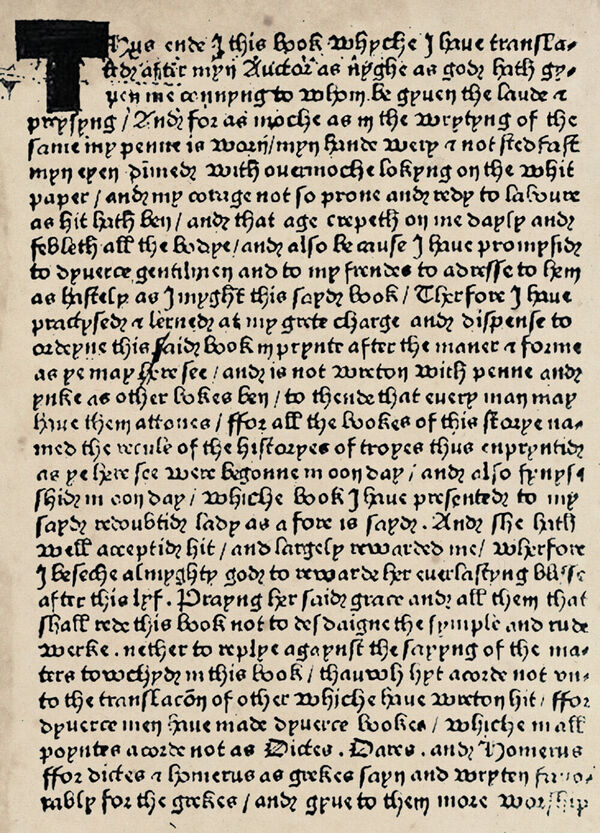 Thus ende I this book whyche I have transla-
ted after myn Auctor as nyghe as god hath gy-
ven me connyng to whom be gyven the laude &
preysyng / And for as moche as in the wrytyng of the
same my penne is worn / myn hande wery & not stedfast
myn eyen dimed with overmoche lokyng on the whit
paper / and my corage not so prone and redy to laboure
as hit hath ben / and that age crepeth on me dayly and
febleth all the bodye / and also be cause I have promysid
to dyverce gentilmen and to my frendes to adresse to hem
as hastely as I myght this sayd book / Therfore I have
practysed & lerned at my grete charge and dispense to
ordeyne this said book in prynte after the maner & forme
as ye may here see / and is not wreton with penne and
ynke as other bokes ben / to thende that every man may
have them attones / ffor all the bookes of this storye na-
med the recule of the historyes of troyes thus enpryntid
as ye here see were begonne in oon day / and also fynys-
shid in oon day / whiche book I have presented to my
sayd redoubtid lady as a fore is sayd . And she hath
well acceptid hit / and largely rewarded me / wherfore
I beseche almyghty god to rewarde her everlastyng blisse
after this lyf . Prayng her said grace and all them that
shall rede this book not to desdaigne the symple and rude
werke . nether to replye agaynst the sayyng of the ma-
ters towchyd in this book / thauwh hyt acorde not vn-
to the translacōn of other whiche have wreton hit / ffor
dyverce men have made dyverce bookes / whiche in all
poyntes acorde not as Dictes . Dares . and Homerus
ffor dictes & homerus as grekes sayn and wryten favo-
rably for the grekes / and gyue to them more worship